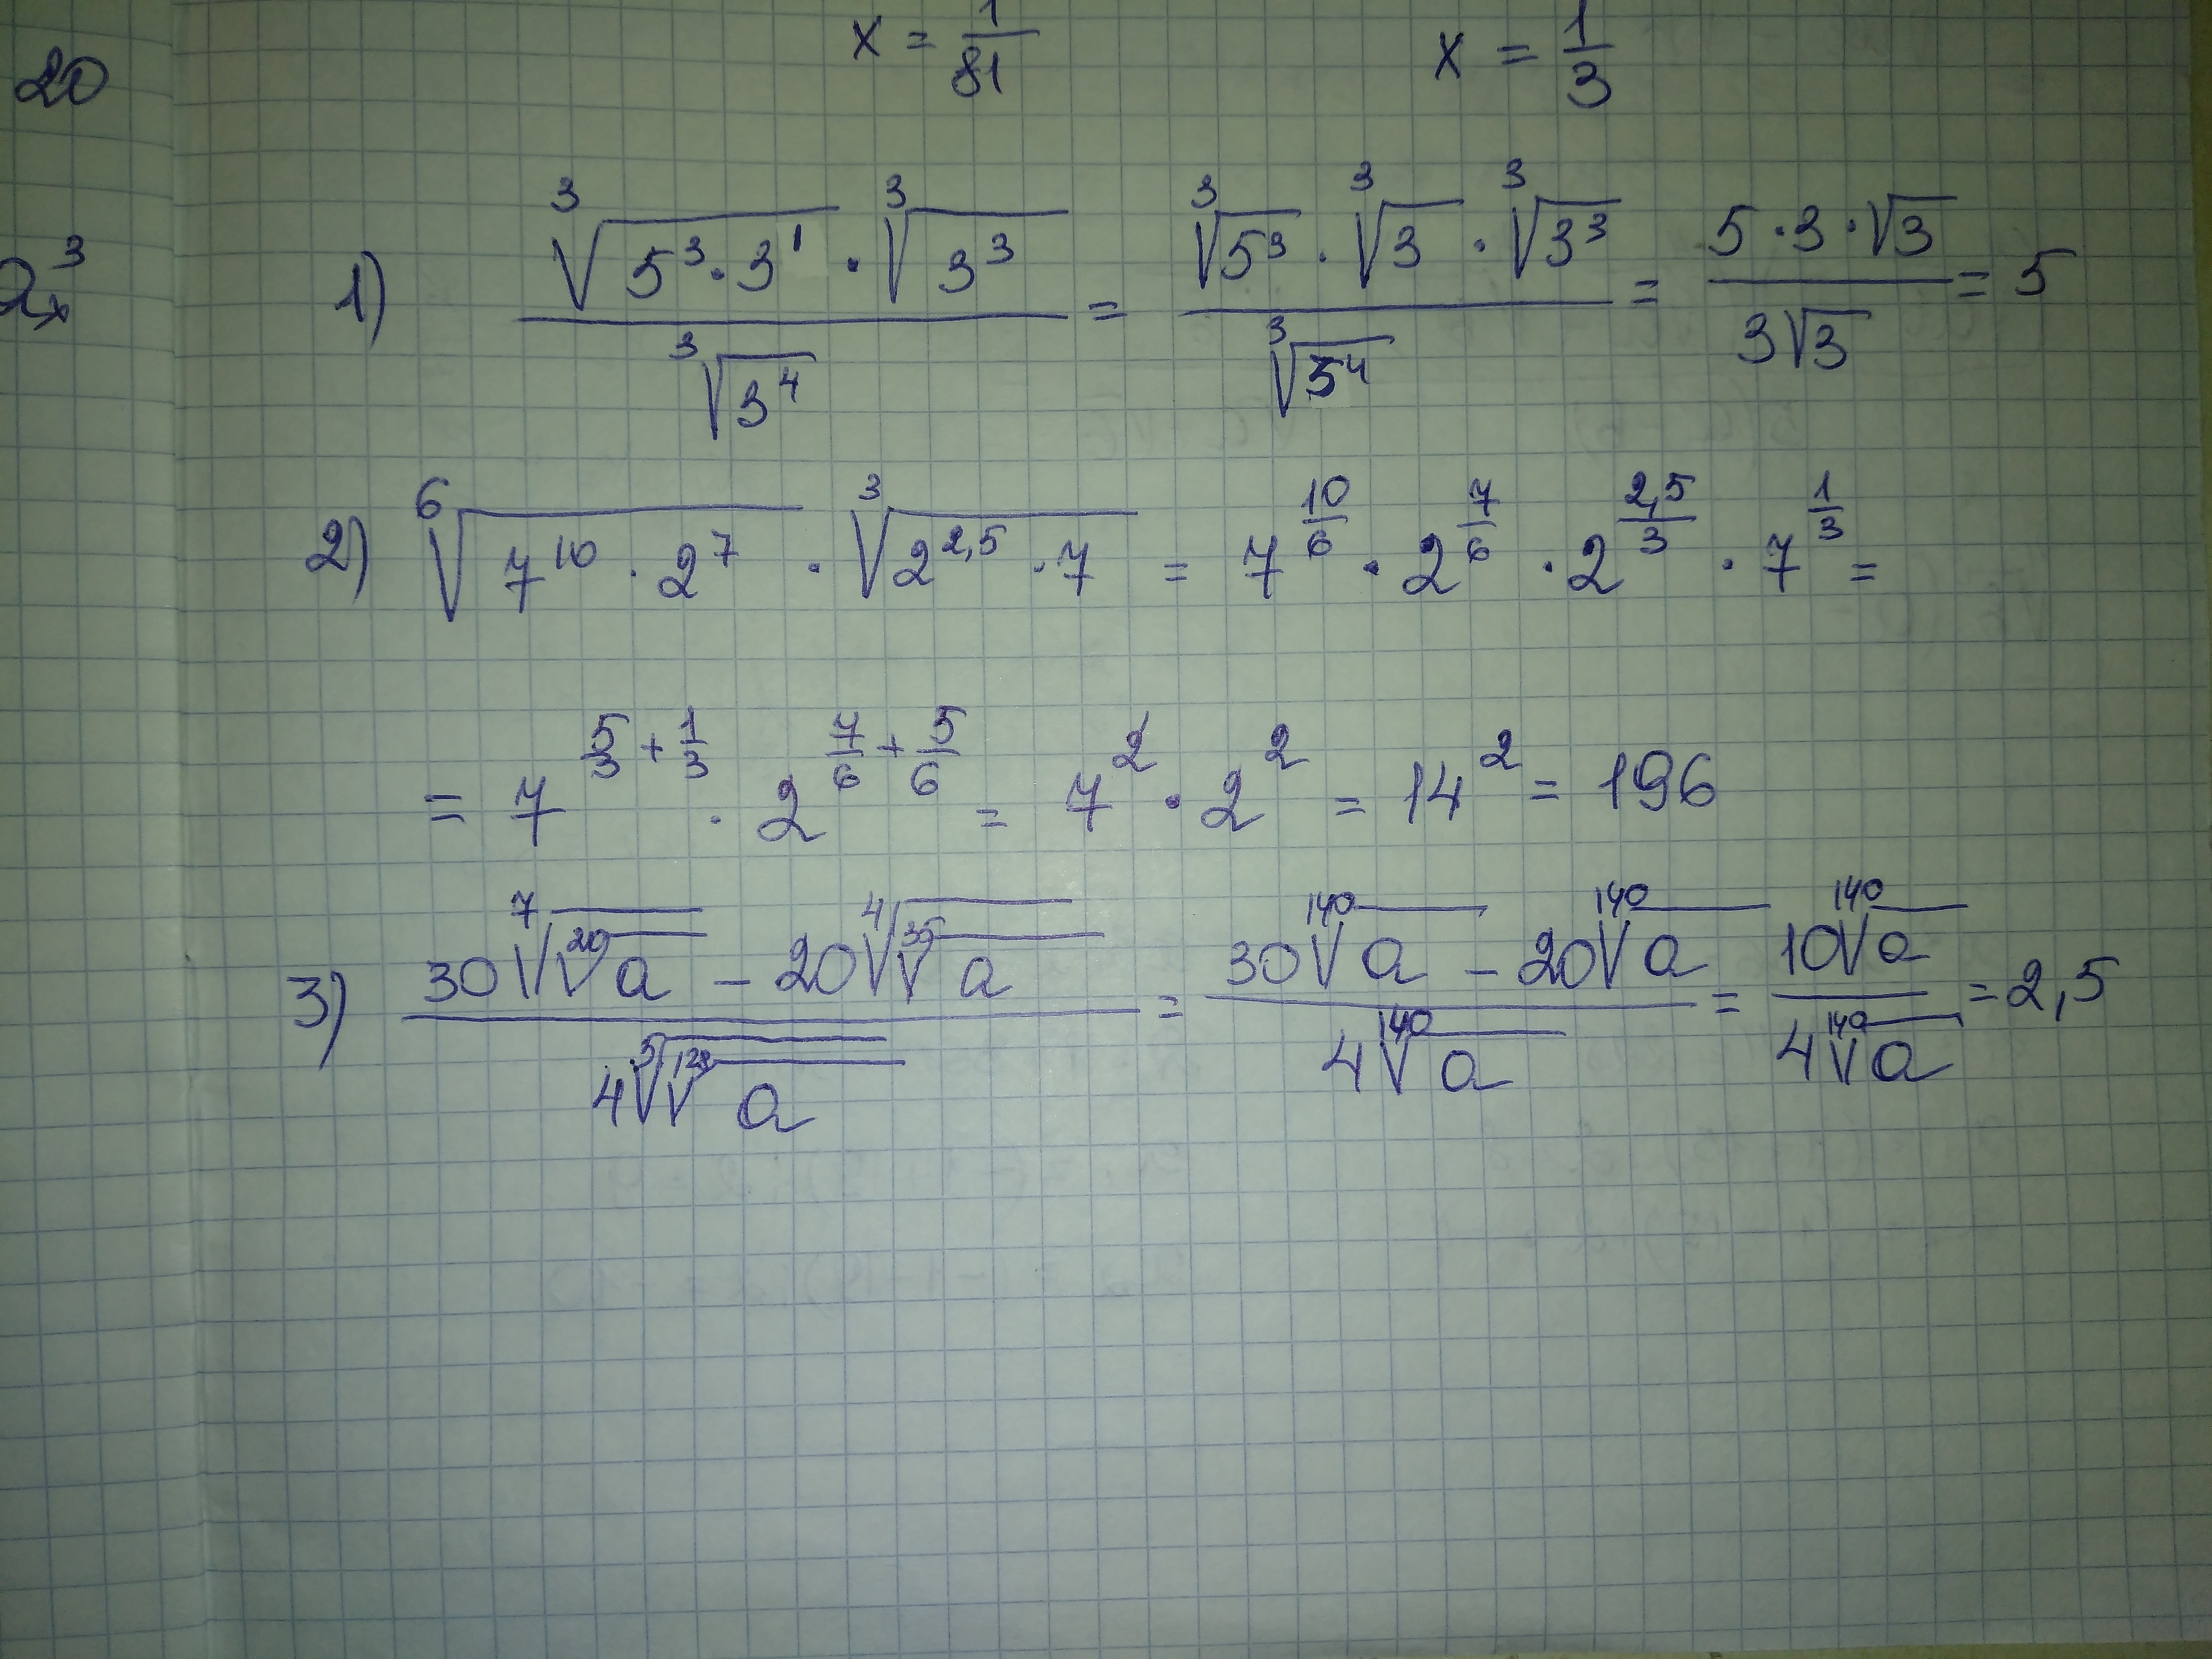 20
x = 1/81    x = 1/3
2x³
1) (∛(5³·3¹) · ∛(3³)) / ∛(3⁴) = (∛(5³) · ∛3 · ∛(3³)) / ∛(3⁴) = (5·3·√3) / (3√3) = 5
2) ⁶√(7¹⁰ · 2⁷) · ∛(2^(2,5) · 7) = 7^(10/6) · 2^(7/6) · 2^(2,5/3) · 7^(1/3) =
= 7^(5/3 + 1/3) · 2^(7/6 + 5/6) = 7² · 2² = 14² = 196
3) (30 ⁷√(²⁰√a) − 20 ⁴√(³⁵√a)) / (4 ⁵√(²⁸√a)) = (30 ¹⁴⁰√a − 20 ¹⁴⁰√a) / (4 ¹⁴⁰√a) = (10 ¹⁴⁰√a) / (4 ¹⁴⁰√a) = 2,5